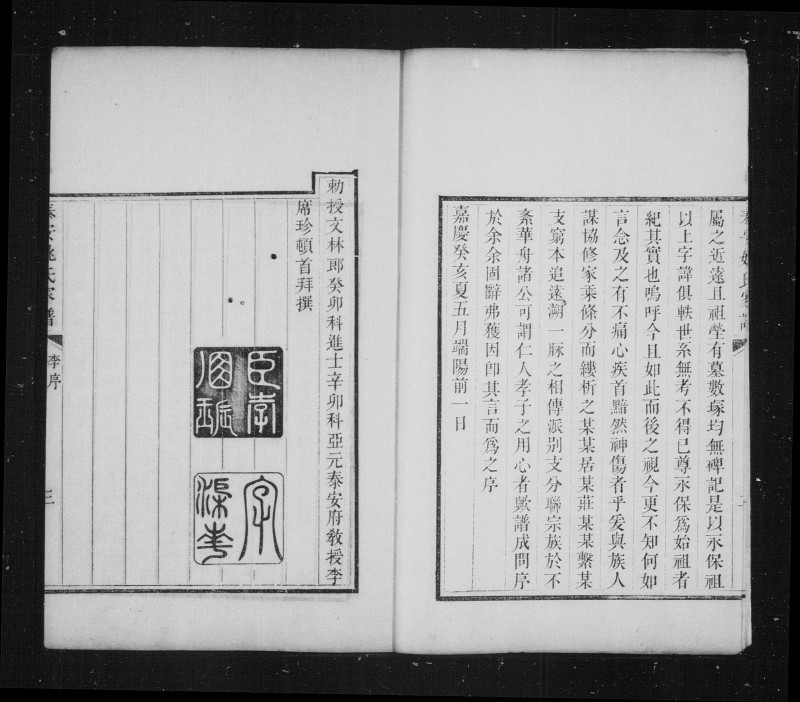 屬之近遠且祖塋有墓數塚均無碑記是以永保祖
以上字諱俱軼世系無考不得已尊永保爲始祖者
紀其實也嗚呼今且如此而後之視今更不知何如
言念及之有不痛心疾首黯然神傷者乎爰與族人
謀協修家乘條分而縷析之某某居某莊某某繫某
支窮本追遠溯一脉之相傳派別支分聯宗族於不
紊華舟諸公可謂仁人孝子之用心者歟譜成問序
於余余固辭弗獲因即其言而爲之序
嘉慶癸亥夏五月端陽前一日
勅授文林郎癸卯科進士辛卯科亞元泰安府敎授李
席珍頓首拜撰
臣李
字
泰安姚氏家譜
李序
三